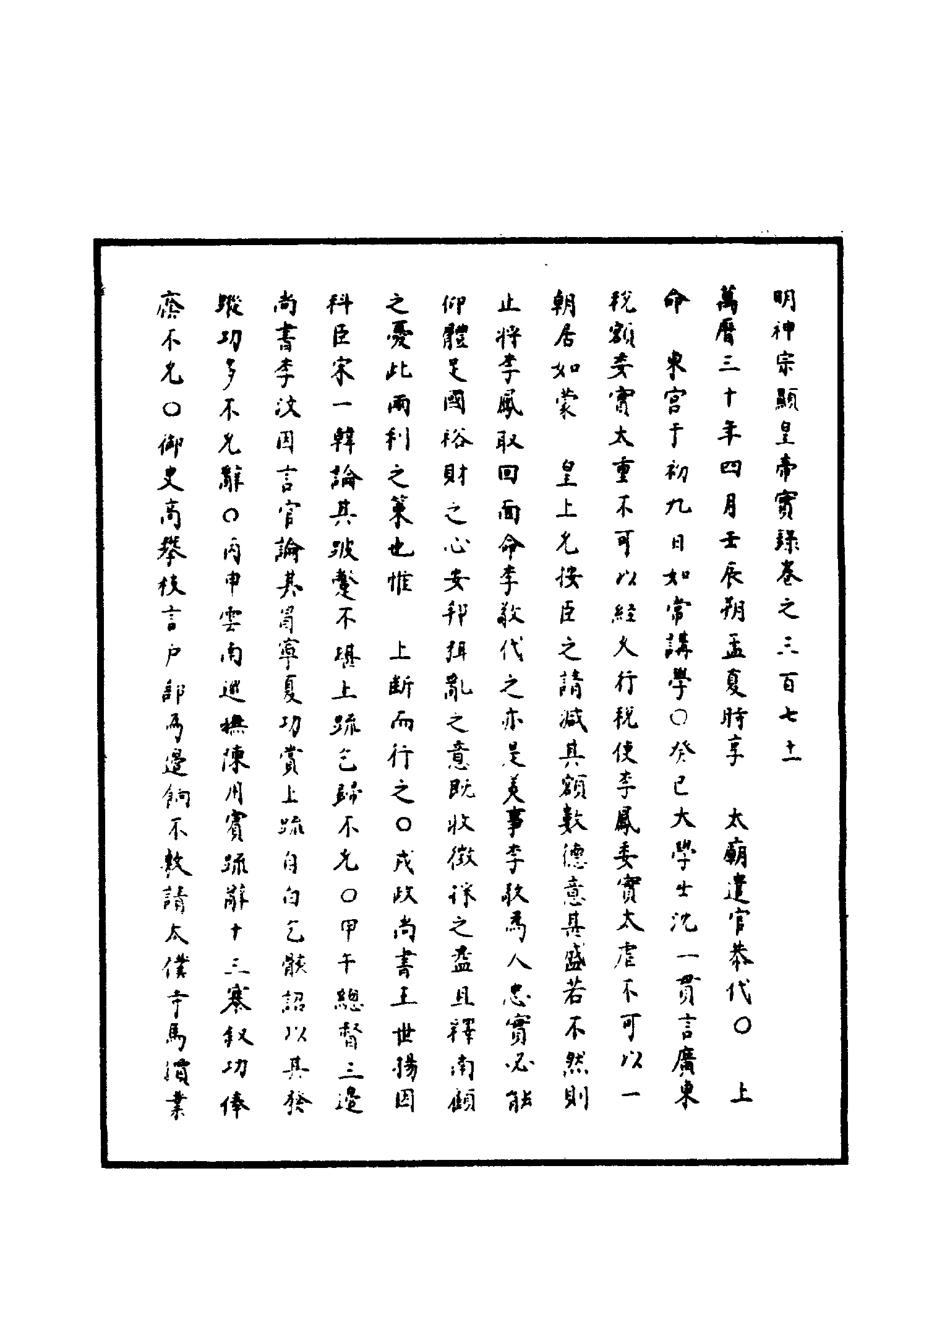 明神宗顯皇帝實錄卷之三百七十一
萬曆三十年四月壬辰朔孟夏時享　太廟遣官恭代〇　上
命　東宮于初九日如常講學〇癸巳大學士沈一貫言廣東
稅額委實太重不可以經久行稅使李鳳委實太虐不可以一
朝居如蒙　皇上允按臣之請減其額數德意甚盛若不然則
止將李鳳取回面命李敬代之亦是美事李敬為人忠實必能
仰體足國裕財之心安邦弭亂之意既收徵採之益且釋南顧
之憂此兩利之策也惟　上斷而行之〇戎政尚書王世揚因
科臣宋一韓論其跛蹩不堪上疏乞歸不允〇甲午總督三邊
尚書李汶因言官論其冒寧夏功賞上疏自白乞骸詔以其發
蹤功多不允辭〇丙申雲南巡撫陳用賓疏辭十三寨敘功俸
廕不允〇御史高舉核言戶部為邊餉不敷請太僕寺馬價業